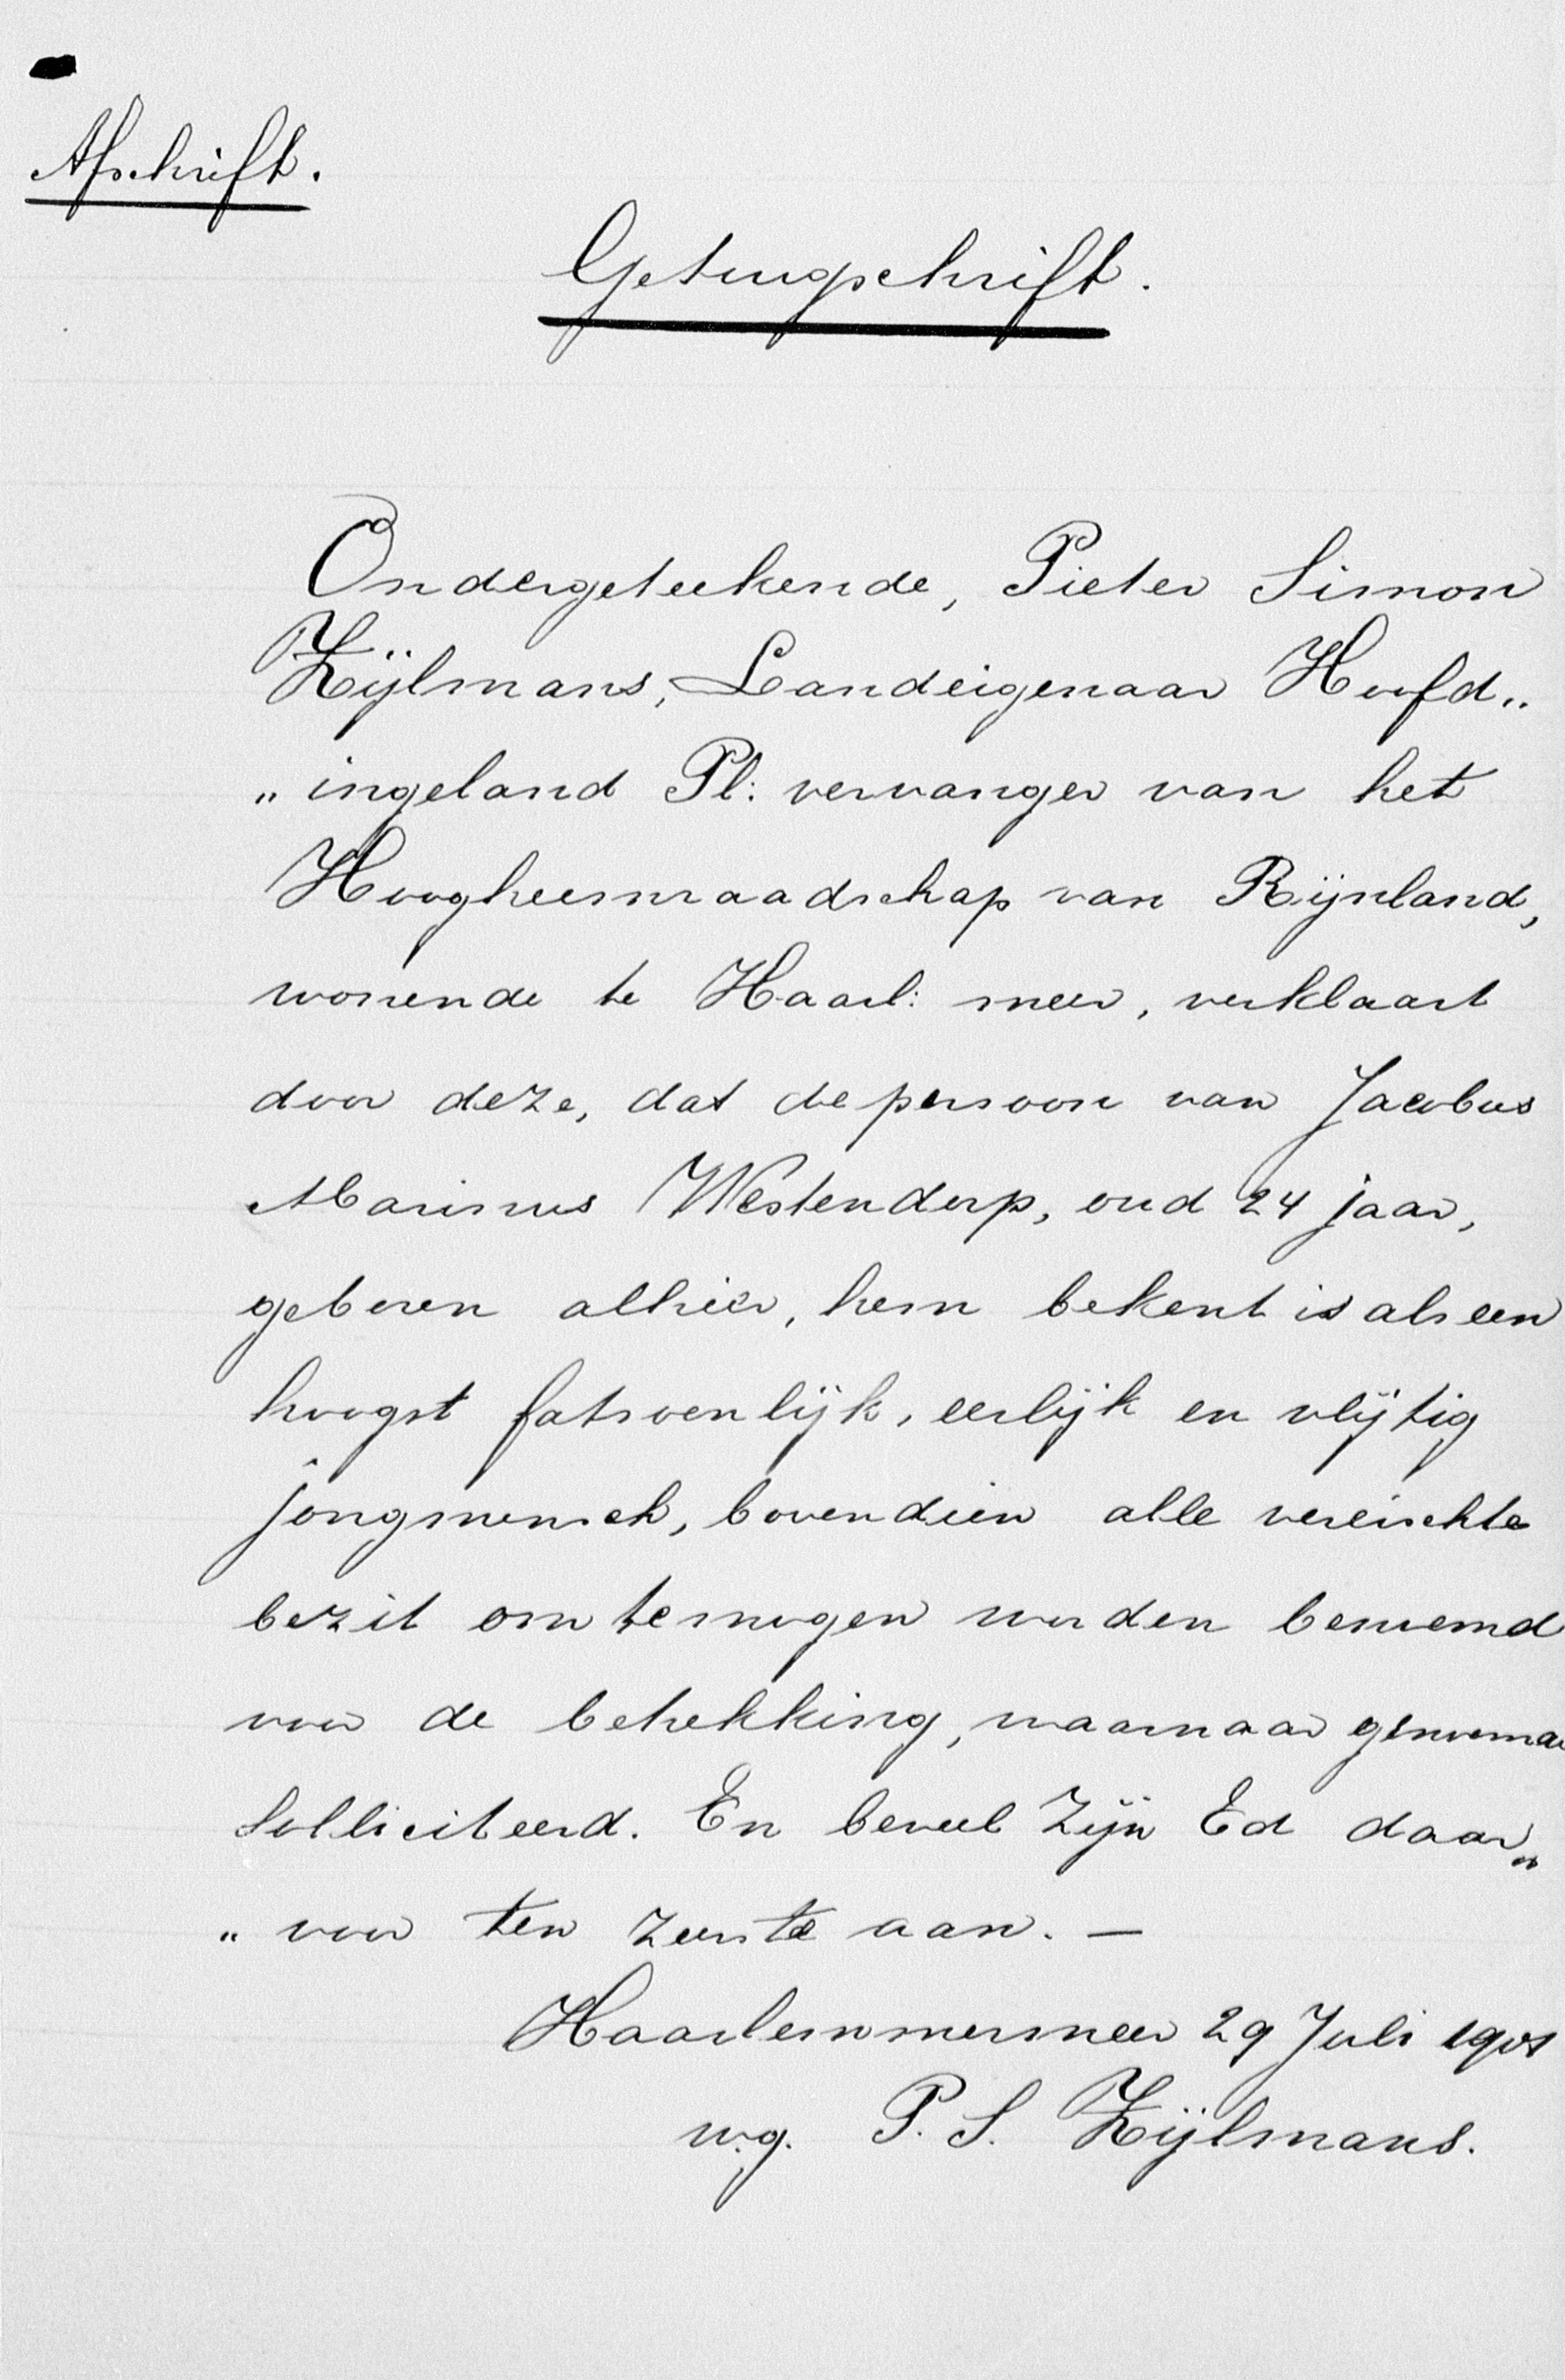 Afschrift.
Getuigschrift.
Ondergeteekende, Pieter Simon
Zijlmans, Landeigenaar Hoofd„
„ingeland Pl: vervanger van het
Hoogheemraadschap van Rijnland,
wonende te Haarl: meer, verklaart
door deze, dat de persoon van Jacobus
Marinus Westendorp, oud 24 jaar,
geboren alhier, hem bekent is als een
hoogst fatsoenlijk, eerlijk en vlijtig
jongmensch, bovendien alle vereischte
bezit om te mogen worden benoemd
voor de betrekking, waarnaar genoemde
solliciteerd. En beveel Zijn Ed daar„
„voor ten zeerste aan. —
Haarlemmermeer 29 Juli 1901
w.g. P. S. Zijlmans.